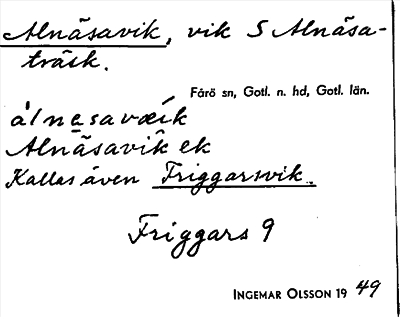 Alnäsavik, vik S Alnäsa-
träsk.
Fårö sn, Gotl. n. hd, Gotl. län.
álnesavæík
Alnäsavik ek
Kallas även Friggarsvik.
Friggars 9
INGEMAR OLSSON 19 49